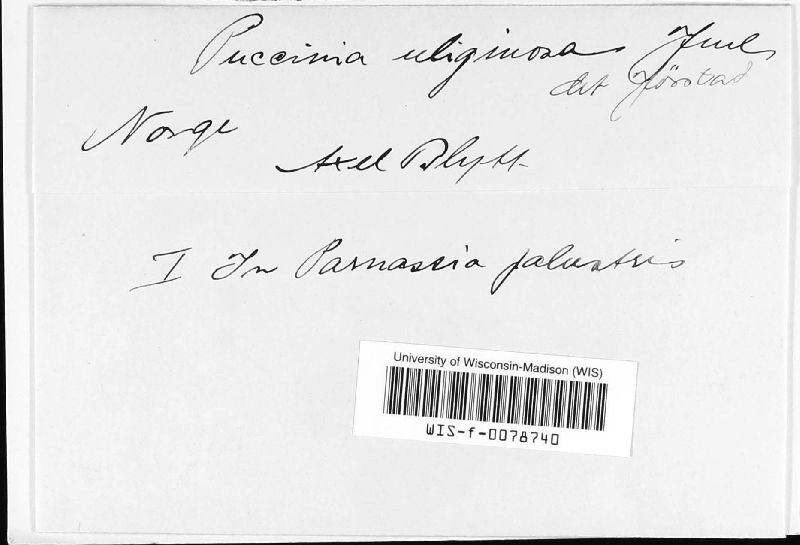 Puccinia uliginosa Juel
det Jörstad
Norge
Axel Blytt
I In Parnassia palustris
University of Wisconsin-Madison (WIS)
WIS-f-0078740